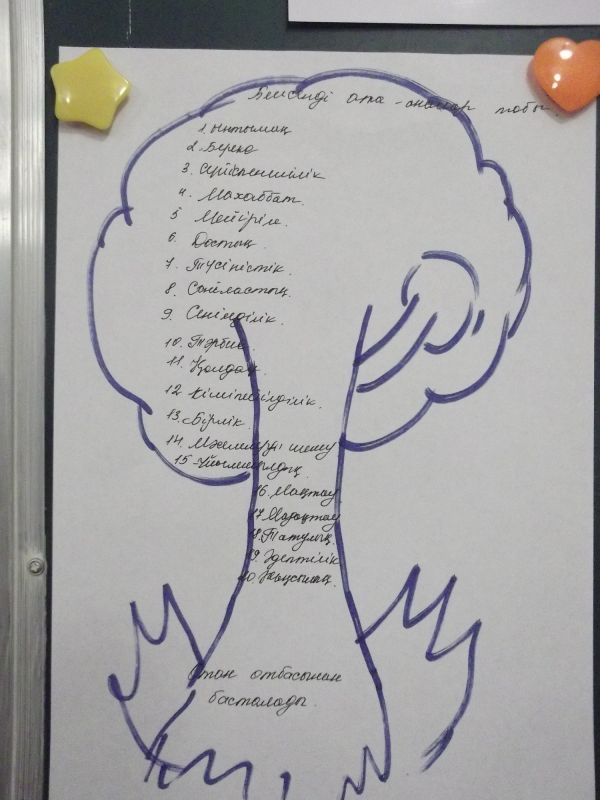 Белсенді ата-аналар тобы.
1. Ынтымақ
2. Береке
3. Сүйіспеншілік
4. Махаббат.
5 Мейірім.
6. Достық.
7. Түсіністік.
8. Сыйластық.
9. Сенімділік.
10. Тәрбие.
11. Қолдау.
12 Кішіпейілділік.
13. Бірлік.
14. Мәселелерді шешу
15 Ұйымшылдық.
16. Мақтау.
17. Мадақтау
18. Татулық.
19. Әдептілік
20. Жақсылық
Отан отбасынан
басталады.